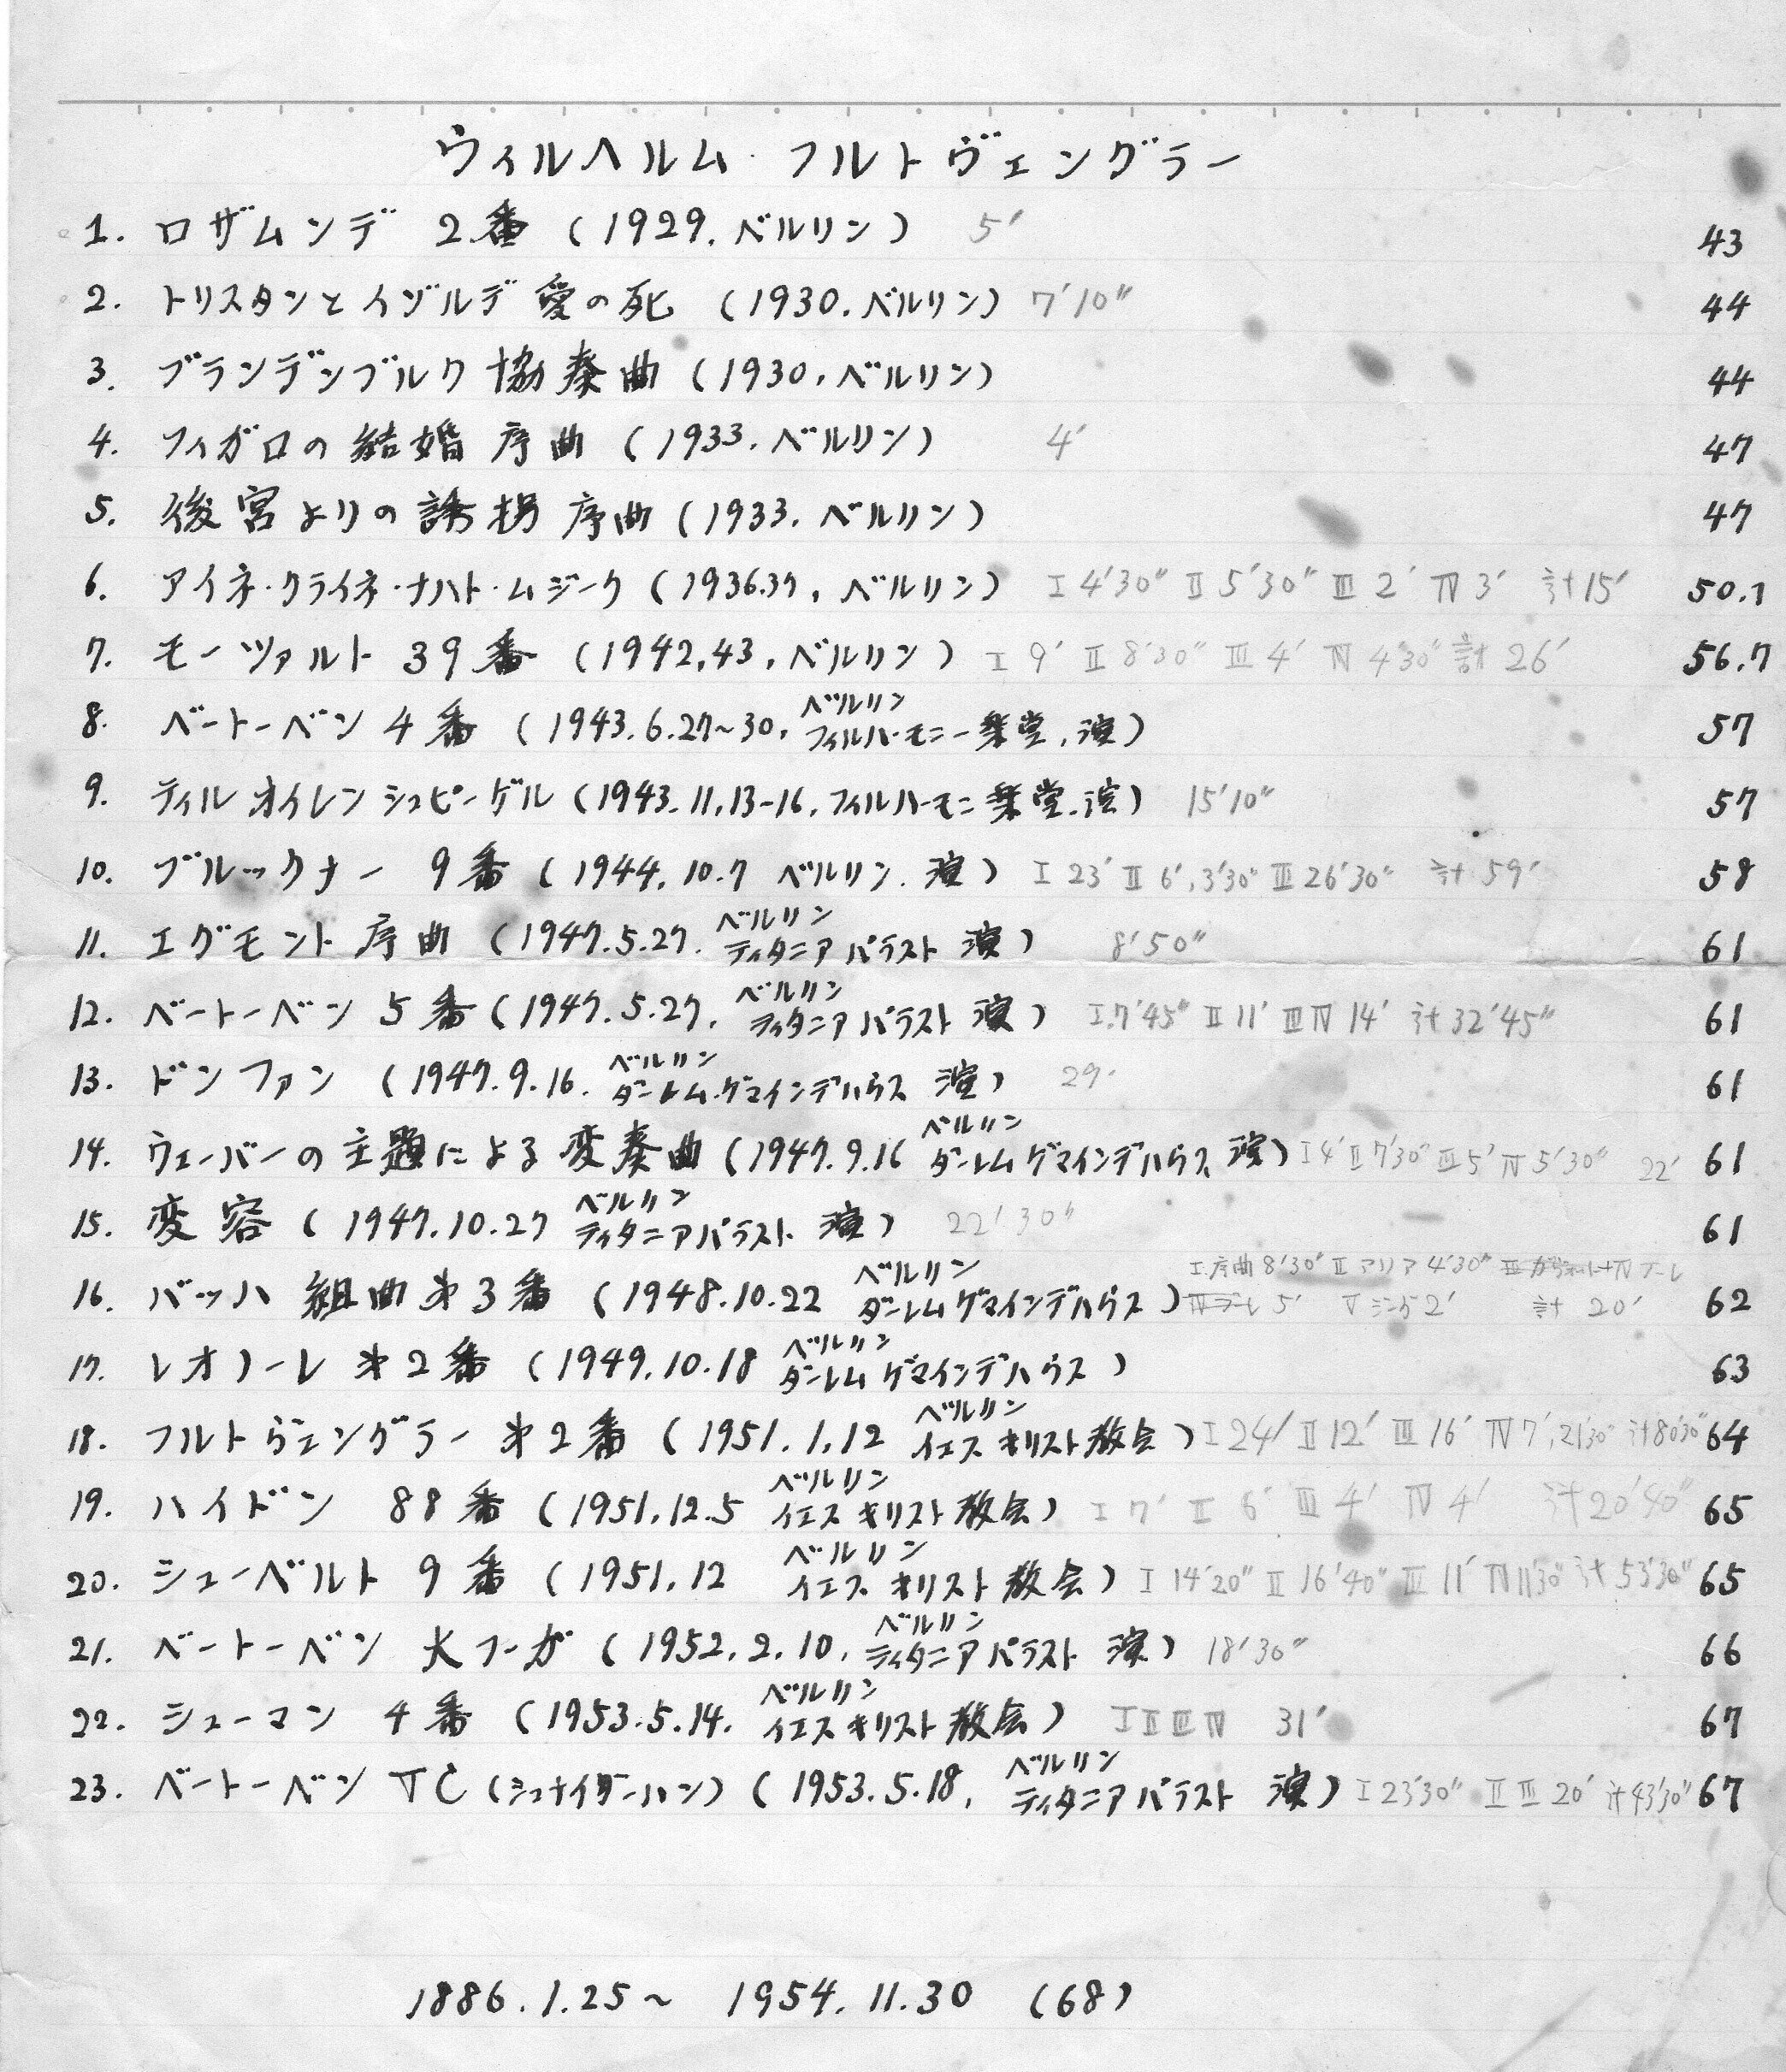 ウィルヘルム・フルトヴェングラー
1. ロザムンデ 2番 (1929. ベルリン) 5′ 43
2. トリスタンとイゾルデ 愛の死 (1930. ベルリン) 7′10″ 44
3. ブランデンブルク協奏曲 (1930. ベルリン) 44
4. フィガロの結婚 序曲 (1933. ベルリン) 4′ 47
5. 後宮よりの誘拐 序曲 (1933. ベルリン) 47
6. アイネ・クライネ・ナハト・ムジーク (1936.37, ベルリン) I 4′30″ II 5′30″ III 2′ IV 3′ 計15′ 50.1
7. モーツァルト 39番 (1942,43, ベルリン) I 9′ II 8′30″ III 4′ IV 4′30″ 計 26′ 56.7
8. ベートーベン 4番 (1943.6.27~30. ベルリン フィルハーモニー楽堂. 演) 57
9. ティルオイレンシュピーゲル (1943.11.13-16. フィルハーモニ楽堂. 演) 15′10″ 57
10. ブルックナー 9番 (1944.10.7 ベルリン. 演) I 23′ II 6′, 3′30″ III 26′30″ 計 59′ 58
11. エグモント序曲 (1947.5.27. ベルリン ティタニアパラスト 演) 8′50″ 61
12. ベートーベン 5番 (1947.5.27. ベルリン ティタニアパラスト 演) I.7′45″ II 11′ III IV 14′ 計 32′45″ 61
13. ドンファン (1947.9.16. ベルリン ダーレム・ゲマインデハウス 演) 29. 61
14. ウェーバーの主題による変奏曲 (1947.9.16 ベルリン ダーレムゲマインデハウス 演) I 4′ II 7′30″ III 5′ IV 5′30″ 22′ 61
15. 変容 (1947.10.27 ベルリン ティタニアパラスト 演) 22′30″ 61
16. バッハ 組曲オ3番 (1948.10.22 ベルリン ダーレムゲマインデハウス) I.序曲 8′30″ II アリア 4′30″ 5′ V ジーグ 2′ 計 20′ 62
17. レオノーレ オ2番 (1949.10.18 ベルリン ダーレムゲマインデハウス) 63
18. フルトヴェングラー オ2番 (1951.1.12 ベルリン イエスキリスト教会) I 24′ II 12′ III 16′ IV 7′, 21′30″ 計80′30″ 64
19. ハイドン 88番 (1951.12.5 ベルリン イエスキリスト教会) I 7′ II 6′ III 4′ IV 4′ 計 20′40″ 65
20. シューベルト 9番 (1951.12 ベルリン イエスキリスト教会) I 14′20″ II 16′40″ III 11′ IV 11′30″ 計 53′30″ 65
21. ベートーベン 大フーガ (1952.2.10. ベルリン ティタニアパラスト 演) 18′30″ 66
22. シューマン 4番 (1953.5.14. ベルリン イエスキリスト教会) I II III IV 31′ 67
23. ベートーベン VC (シュナイダーハン) (1953.5.18. ベルリン ティタニアパラスト 演) I 23′30″ II III 20′ 計43′30″ 67
1886.1.25~ 1954.11.30 (68)